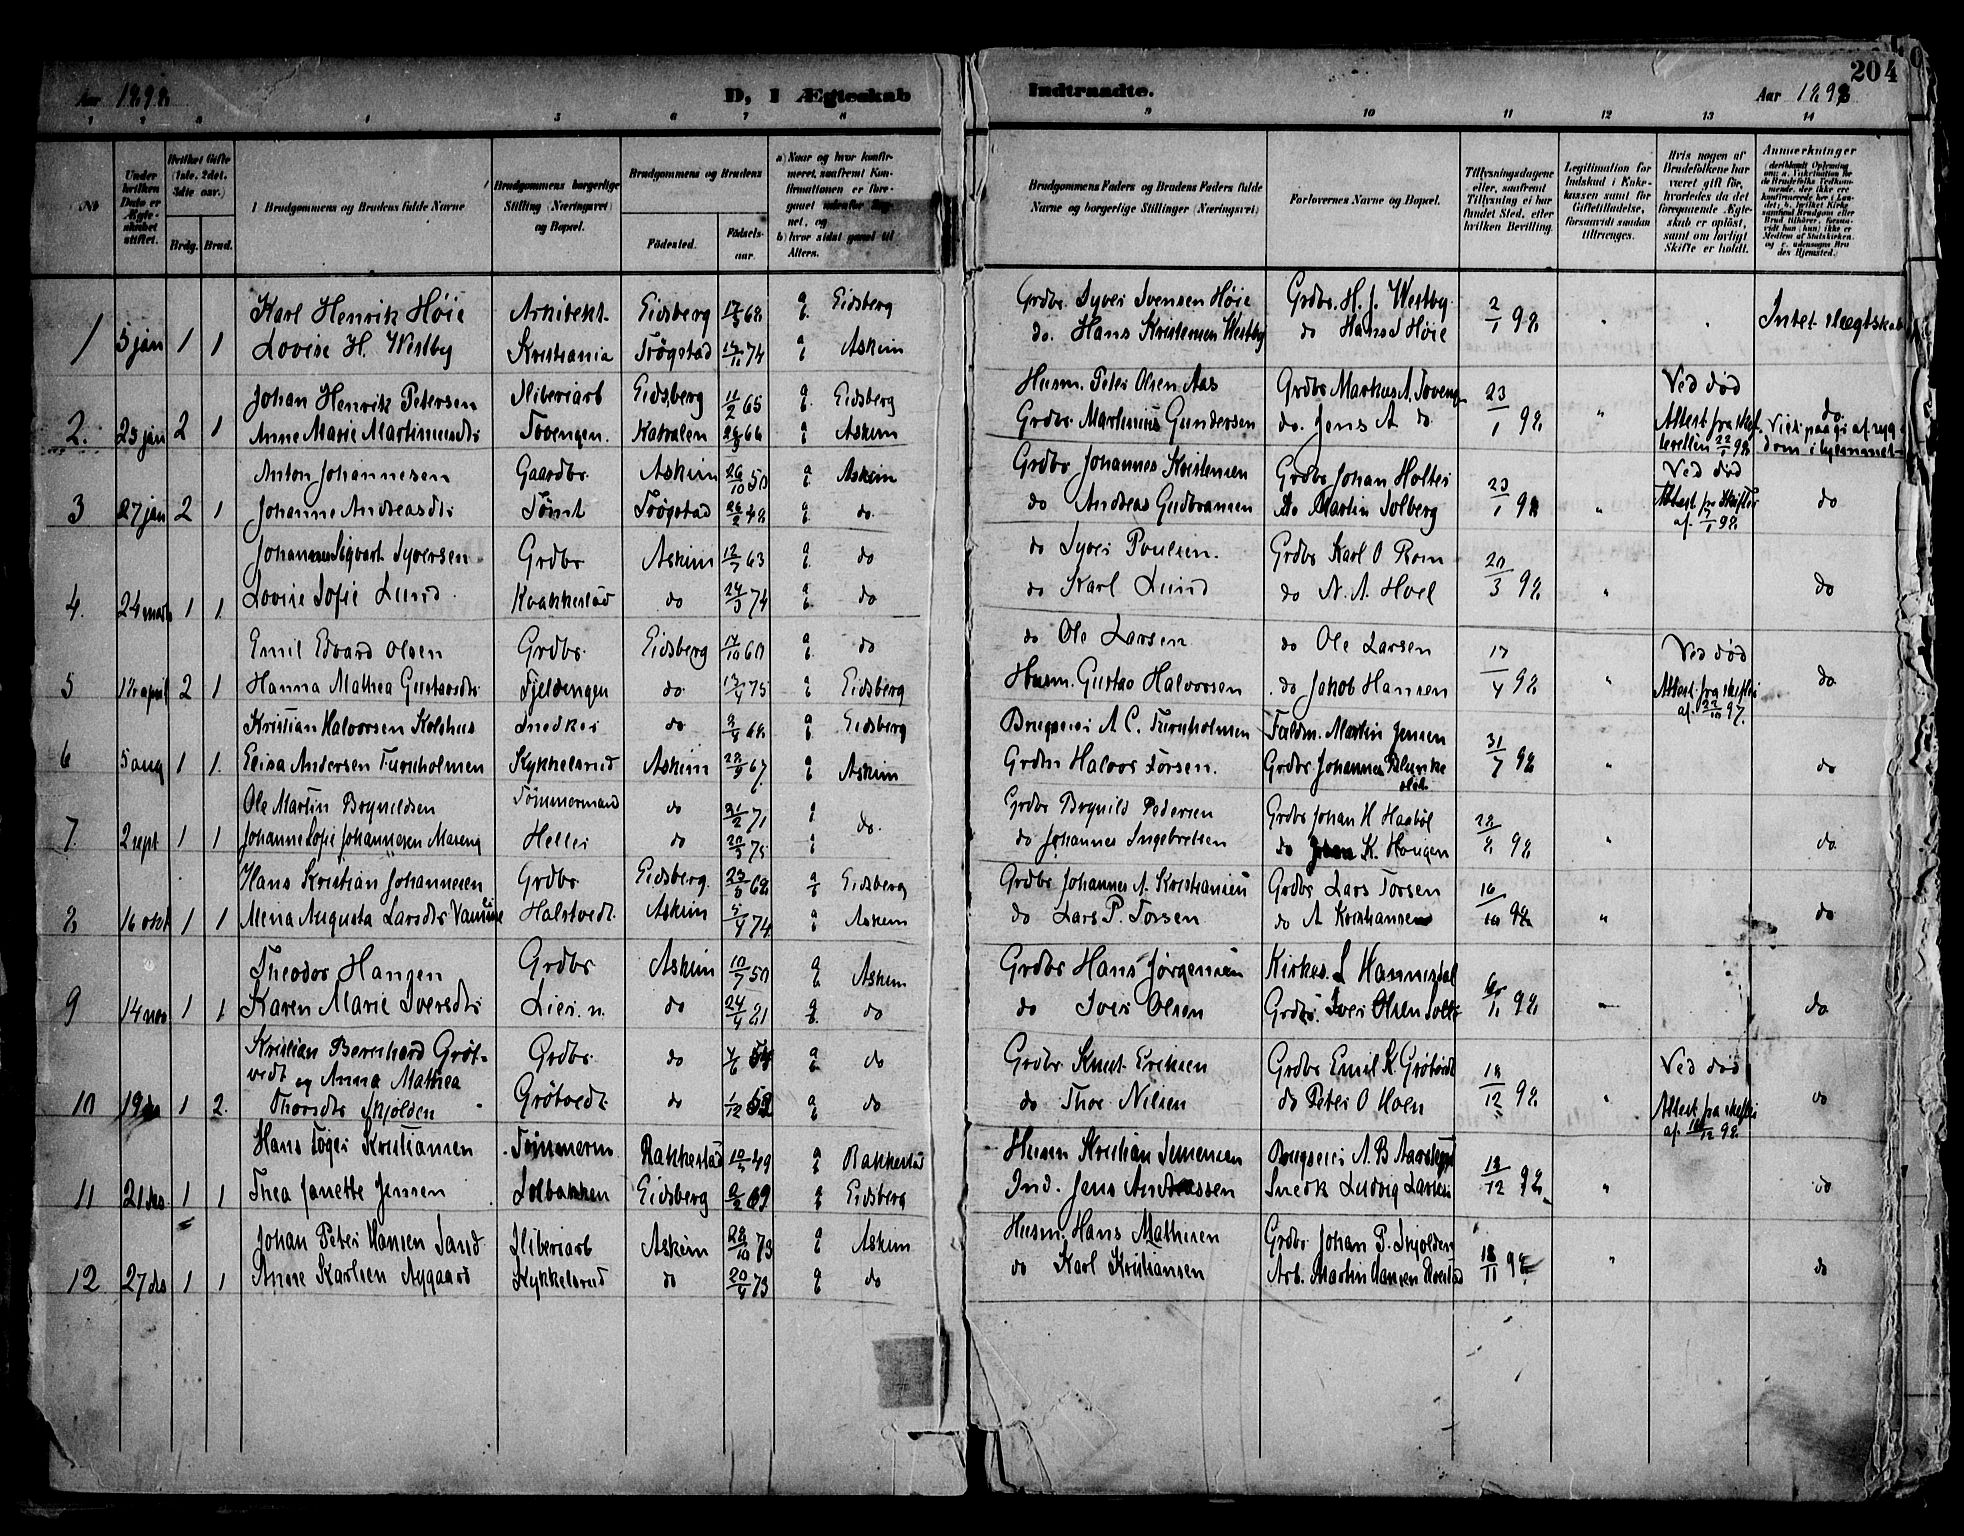 204
Aar 1898
D, I Ægteskab
Indtraadte.
Aar 1898
1 2 3 4 5 6 7 8
9 10 11 12 13 14
No
Under hvilken Dato er Ægteskabet stiftet.
Hvilket Gifte (1ste, 2det, 3die osv.)
Brdg. Brud.
Brudgommens og Brudens fulde Navne
Brudgommens borgerlige Stilling (Næringsvei) og Bopæl.
Brudgommens og Brudens
Fødested.
Fødselsaar.
a) Naar og hvor konfirmeret, saafremt Konfirmationen er foregaaet udenfor Sognet, og
b) hvor sidst gaaet til Alters.
Brudgommens Faders og Brudens Faders fulde Navne og borgerlige Stillinger (Næringsvei)
Forlovernes Navne og Bopæl.
Tillysningsdagene eller, saafremt Tillysning ei har fundet Sted, efter hvilken Bevilling.
Legitimation for Indskud i Enkekassen samt for Giftetilladelse, forsaavidt saadan tiltrænges.
Hvis nogen af Brudefolkene har været gift før, hvorledes da det foregaaende Ægteskab er opløst, samt om lovligt Skifte er holdt.
Anmærkninger
1 5 jan 1 1 Karl Henrik Høie Arkitekt. Eidsberg 68 a Eidsberg Grdbr. Syver Svensen Høie Grdbr. H. J. Westby 2/1 98 " . Intet slægtskab
Lovise H. Westby Kristiania Trøgstad 74 a Askim do. Hans Kristensen Westby do Hans S Høie
Johan Henrik Petersen Sliberiarb Eidsberg 11/2 65 a Eidsberg Husm. Peter Olsen Aas Grdbr Markus A. Toveng 23/1 98 " Ved død
2. 25 jan 2 1 Anne Marie Martinusdtr Tovengen. 66 a Askim Grdbr. Martinius Gundersen do. Jens A do Attest fra 22/1 98 do.
Anton Johannesen Gaardbr Askim 26/10 50 a Askim Grdbr Johannes Kristensen Grdbr Johan Holter 23/1 98 " Ved død
3 27 jan 2 1 Johanne Andreasdtr Tømt Trøgstad 26/2 48 do do Andreas Gudbransen do Martin Solberg Attest fra Skifter af 98 do
Johannes Sigvart Syversen Grdbr Askim 12/7 63 do do Syver Poulsen. Grdbr Karl O Rom 20/3 98 "
4. 24 mars 1 1. Lovise Sofie Lund Kvakkestad do 24/3 74 do do Karl Lund do N. A. Hoel do
Emil Edvard Olsen Grdbr. Eidsberg 17/10 60 do do Ole Larsen do Ole Larsen 17/4 98 " Ved død
5 18 april 2 1 Hanna Mathea Gustavsdtr Fjeldengen do. 13/4 75 Eidsberg Husm. Gustav Halvorsen do Jakob Hansen Attest fra skifter af. 22/10 97. do
Kristian Halvorsen Kolshus Snedker do 68 Eidsberg Brugseier A C. Furuholmen Fuldm. Martin Jensen 31/7 98 "
6 5 aug 1 1. Elisa Andersen Furuholmen Kykkelsrud Askim 67. Askim Grdm Halvor Torsen. Grdbr Johannes Blunke do
Ole Martin Brynildsen Tømmermand do 21/2 71 do. Grdbr Brynild Pedersen Grdbr Johan H Haabøl 28/8 98 "
7. 2 sept 1 1 Johanne Sofie Johannesen Mareng Heller do 75 do Johannes Ingebretsen do K. Haugen do
Hans Kristian Johannesen Grdbr Eidsberg. 23/3 68 Eidsberg Grdbr Johannes A. Kristiansen Grdbr Lars Torsen 16/10 98 "
8 16 okt 1 1 Mina Augusta Larsdtr Halstvedt. Askim 5/4 74. Askim do Lars P. Torsen do A Kristiansen do
Theodor Hansen Grdbr Askim 10/7 50 Askim Grdbr Hans Jørgensen Kirkes. L Hannestad 98
9 14 nov 1 1. Karen Marie Iversdtr Lier. n. do 24/4 81 do do Iver Olsen Grdbr. Iver Olsen do
Kristian Bernhard Grøtvedt og Anna Mathea Grdbr. do do Grdbr Knut Eriksen Grdbr Emil K. Grøtvedt 18/12 98 " Ved død
10 19 de 1 2. Thorsdtr Skjølden Grøtvedt. do 1/12 do do Thor Nilsen do Peter O Moen Attest fra skifter af 98 do
Hans Toger Kristiansen Tømmerm Rakkestad 49 Rakkestad Husm Kristian Simensen Brugseier A. B. 18/12 98
11 21 des 1 1 Thea Janette Jensen Solbakken Eidsberg 69 Eidsberg Ind. Jens Andreassen Snedk Ludvig Larsen " do
Johan Peter Hansen Sand Sliberiarb Askim 28/10 73 Askim Husm. Hans Mathisen Grdbr Johan P. Skjolden 18/11 98 "
12 27 des 1 1 Anne Karlsen Nygaard Kykkelsrud do 20/4 73 do do Karl Kristiansen Arb. Martin Hansen do